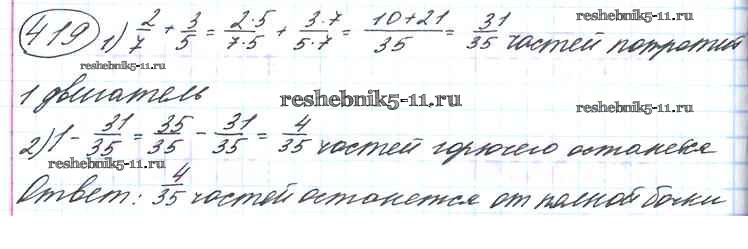 419 1) 2/7 + 3/5 = 2·5/7·5 + 3·7/5·7 = 10+21/35 = 31/35 частей потратий
reshebnik5-11.ru reshebnik5-11.ru
1 двигатель
reshebnik5-11.ru reshebnik5-11.ru
2) 1 - 31/35 = 35/35 - 31/35 = 4/35 частей горючего останется
reshebnik5-11.ru
Ответ: 4/35 частей останется от полной бочки